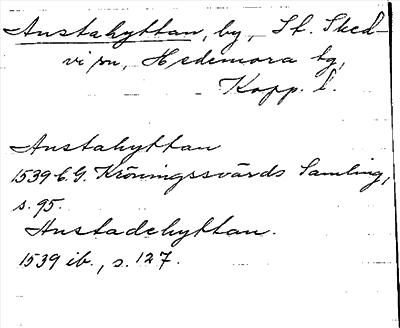 Anstahyttan, by, St. Sked-
vi sn, Hedemora tg,
Kopp. l.
Anstahyttan
1539 C. G. Kröningssvärds Samling,
s. 95.
Anstadehyttan.
1539 ib., s. 127.